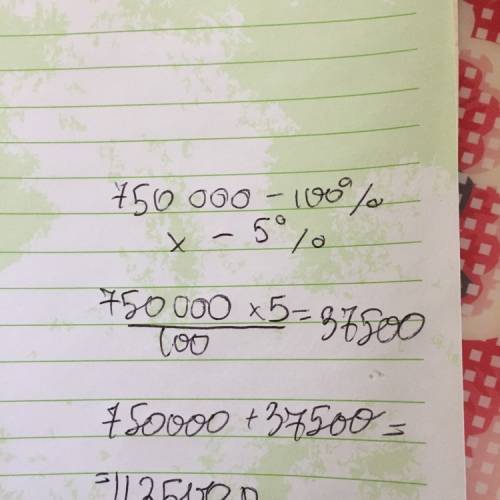 750 000 - 100%
x - 5%
750 000 x5 = 37500
100
750000 + 37500 =